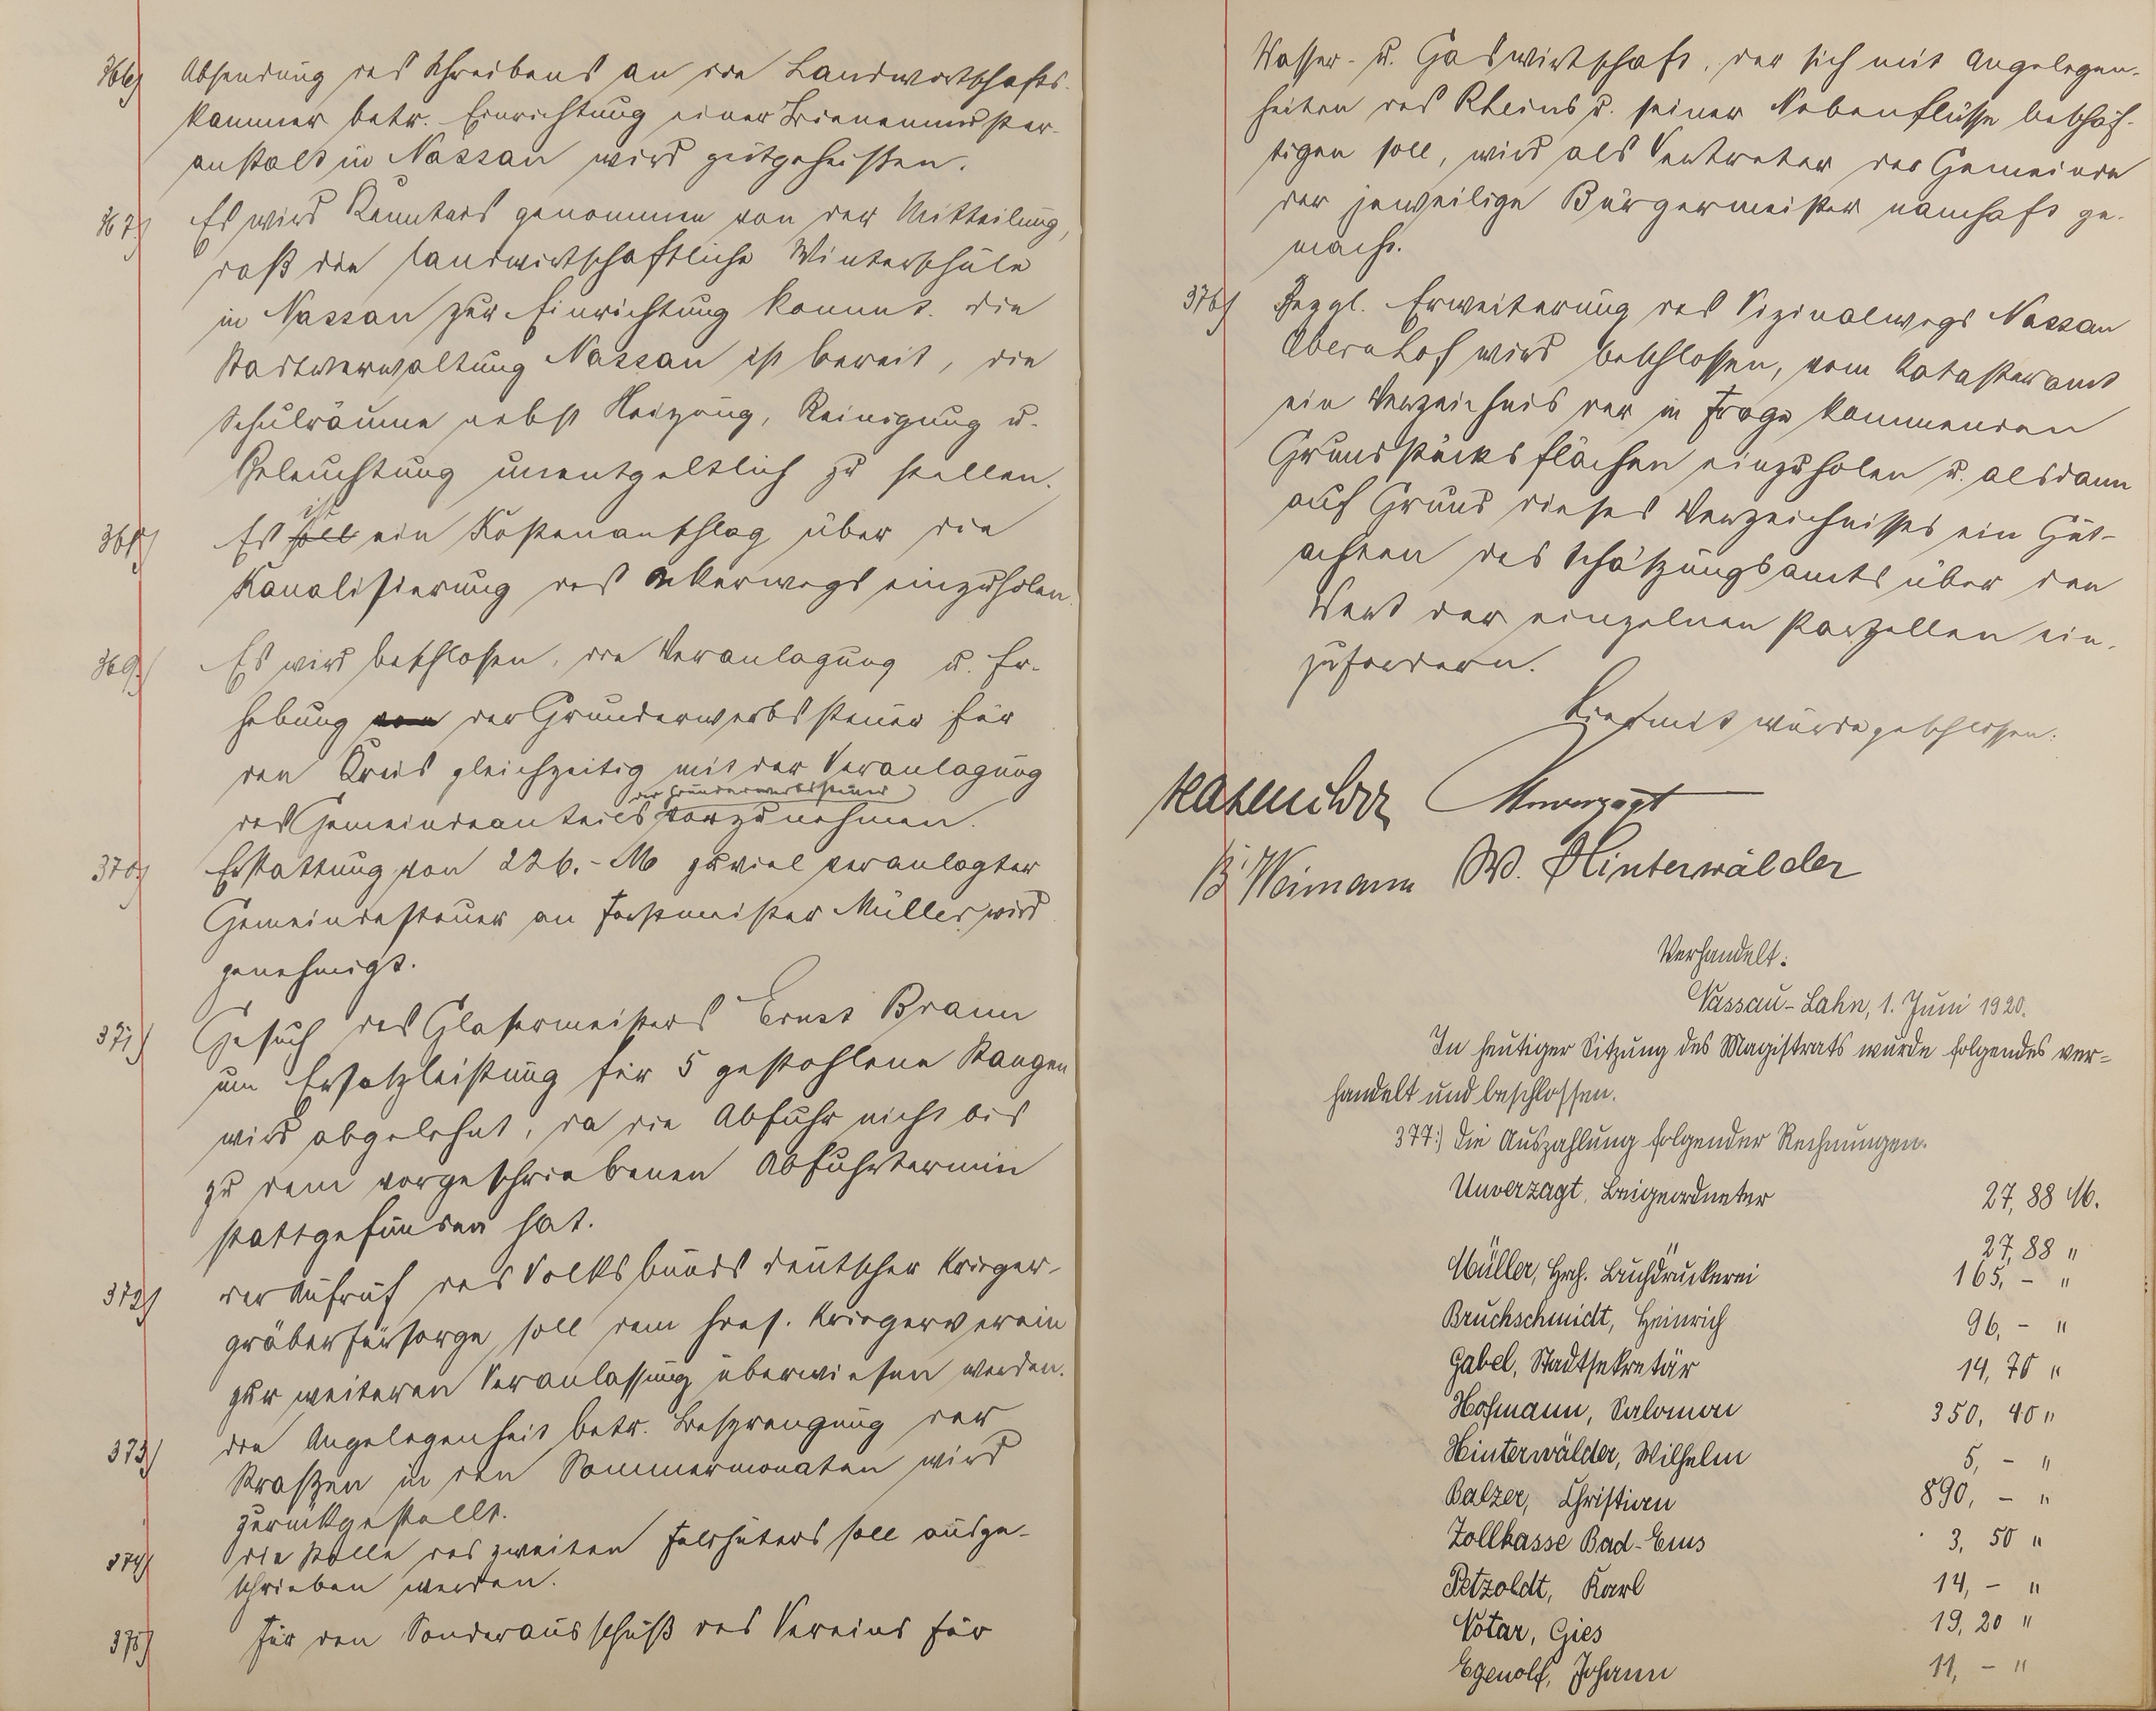 366) Absendung des Schreibens an die Landwirtschafts-
kammer betr. Einrichtung einer Bienenmuster-
anstalt in Nassau wird gutgeheissen.
367.) Es wird Kenntnis genommen von der Mitteilung,
daß die landwirtschaftliche Winterschule
in Nassau zur Einrichtung kommt. Die
Stadtverwaltung Nassau ist bereit, die
Schulräume nebst Heizung, Reinigung u.
Beleuchtung unentgeltlich zu stellen.
ist
368) Es soll ein Kostenanschlag über die
Kanalisierung des Akerwegs einzuholen.
369.) Es wird beschlossen, die Veranlagung u. Er-
hebung von der Grunderwerbssteuer für
den Kreis gleichzeitig mit der Veranlagung
der Grunderwerbssteuer
des Gemeindeanteils vorzunehmen.
370.) Erstattung von 226.- M zuviel veranlagter
Gemeindesteuer an Forstmeister Müller wird
genehmigt.
371) Gesuch des Glasermeisters Ernst Braun
um Ersatzleistung für 5 gestohlene Stangen
wird abgelehnt, da die Abfuhr nicht bis
zu dem vorgeschriebenen Abfuhrtermin
stattgefunden hat.
372) Der Aufruf des Volksbunds deutscher Krieger-
gräberfürsorge soll dem hies. Kriegerverein
zur weiteren Veranlassung überwiesen werden.
373) Die Angelegenheit betr. Besprengung der
Straßen in den Sommermonaten wird
zurückgestellt.
374) Die Stelle des zweiten Feldhüters soll ausge-
schrieben werden.
375) Für den Sonderausschuß des Vereins für
Wasser- u. Gaswirtschaft, der sich mit Angelegen-
heiten des Rheins u. seiner Nebenflüsse beschäf-
tigen soll, wird als Vertreter der Gemeinde
der jeweilige Bürgermeister namhaft ge-
macht.
376) Bezgl. Erweiterung des Vizinalwegs Nassau
Obernhof wird beschlossen, vom Katasteramt
ein Verzeichnis der in Frage kommenden
Grundstücksflächen einzuholen u. alsdann
auf Grund dieses Verzeichnisses ein Gut-
achten des Schätzungsamts über den
Wert der einzelnen Parzellen ein-
zufordern.
Hiermit wurde geschlossen.
Unverzagt
B. Weimann W. Hinterwälder
Verhandelt:
Nassau-Lahn, 1. Juni 1920.
In heutiger Sitzung des Magistrats wurde folgendes ver=
handelt und beschlossen.
377.) Die Auszahlung folgender Rechnungen.
Unverzagt, Beigeordneter 27,88 M.
27,88 "
Müller, Hch. Buchdruckerei 165,- "
Bruchschmidt, Heinrich 96,- "
Gabel, Stadtsekretär 14,70 "
Hofmann, Salomon 350,40 "
Hinterwälder, Wilhelm 5,- "
Balzer, Christian 890,- "
Zollkasse Bad-Ems 3,50 "
Petzoldt, Karl 14,- "
Notar, Gies 19,20 "
Egenolf, Johann 11,- "